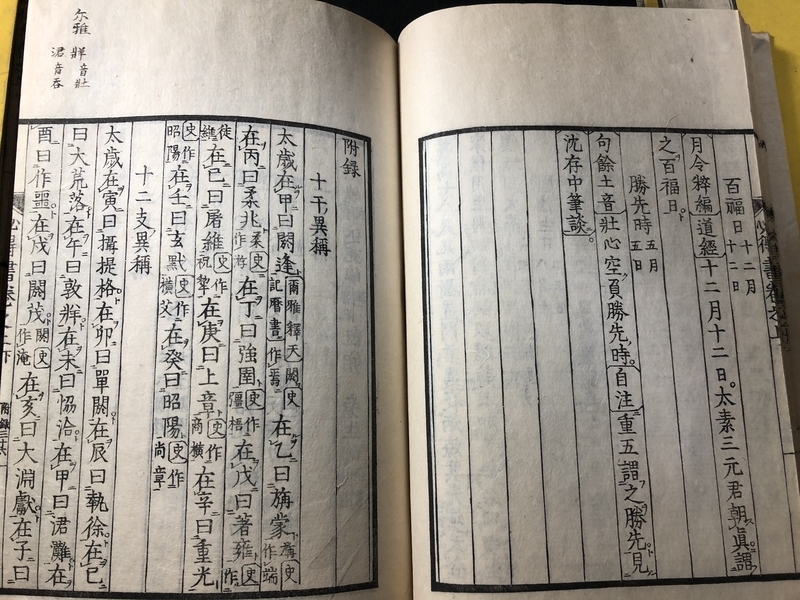 百福日 十二月十二日
月令粹編 道經 十二月十二日。太素三元君朝眞謂
之百福日。
勝先時 五月五日
句餘土音 壯心空負勝先時。自注 重五謂之勝先見
沈存中筆談。
附錄
十干異稱
太歲在甲曰閼逢 爾雅釋天閼史記曆書作焉 在乙曰旃蒙 旃史作端
在丙曰柔兆 柔史作游 在丁曰強圉 史作彊梧 在戊曰著雍 史作
徒維 在己曰屠維 史作祝犂 在庚曰上章 史作商橫 在辛曰重光
史作昭陽 在壬曰玄黓 史作橫艾 在癸曰昭陽 史作尚章
十二支異稱
太歲在寅曰攝提格在卯曰單閼在辰曰執徐在巳
曰大荒落在午曰敦牂在未曰協洽在申曰涒灘在
酉曰作噩在戌曰閹茂 閹史作淹 在亥曰大淵獻在子曰
尔雅 牂音壯
涒音吞